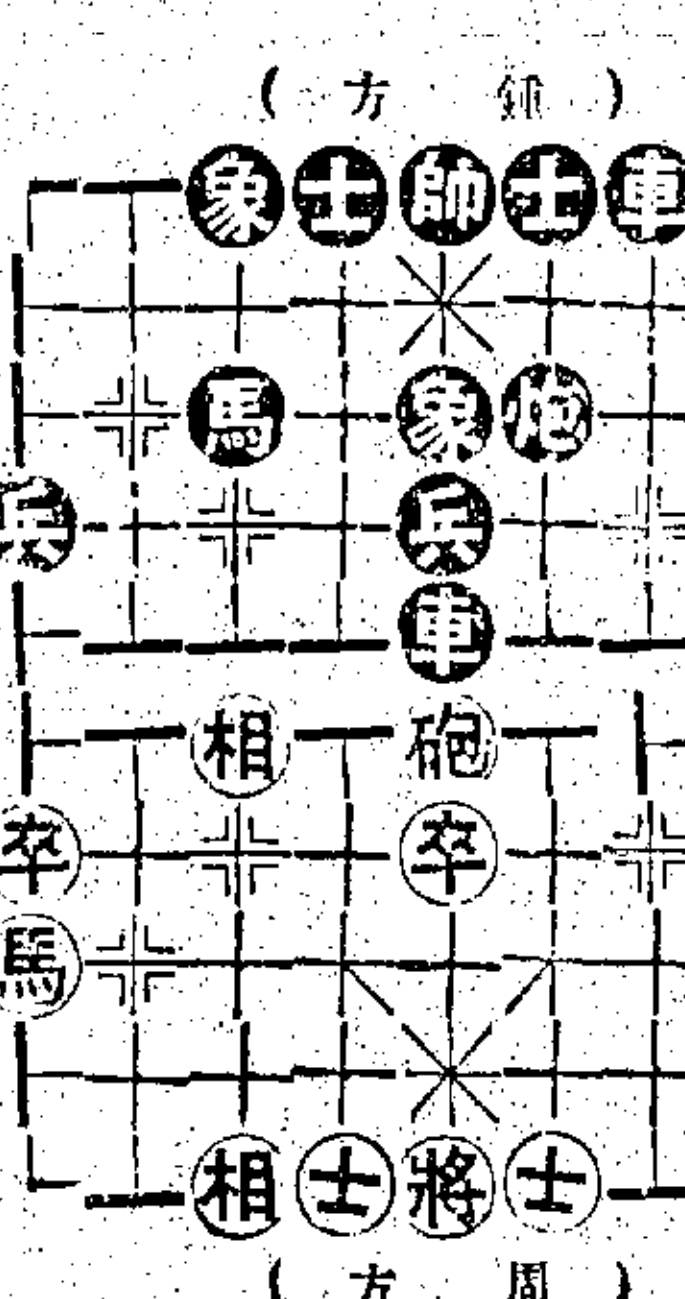 ( 方 鍾 )
象 士 帥 士 車
馬 象 炮
兵 兵
車
相 砲
卒 卒
馬
相 士 將 士
( 方 周 )